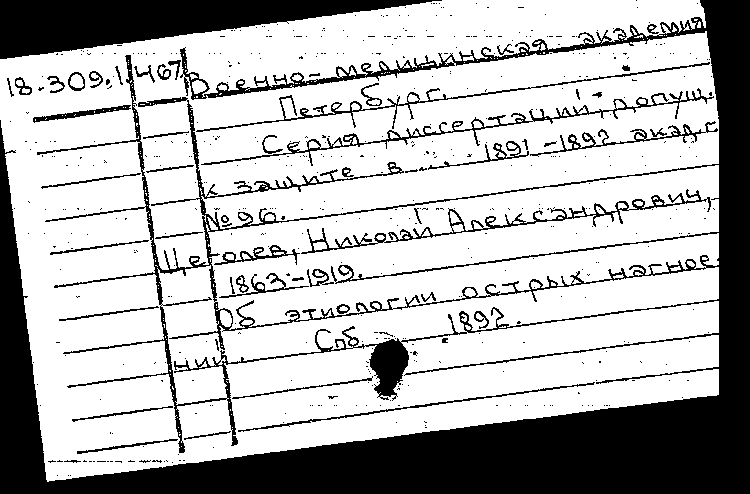 18.309.1.467 Военно-медицинская академия
Петербург.
Серия диссертаций, допущ.
к защите в ... 1891-1892 акад.г
№ 96.
Щеголев, Николай Александрович,
1863-1919.
Об этиологии острых нагное-
ний. Спб 1892.